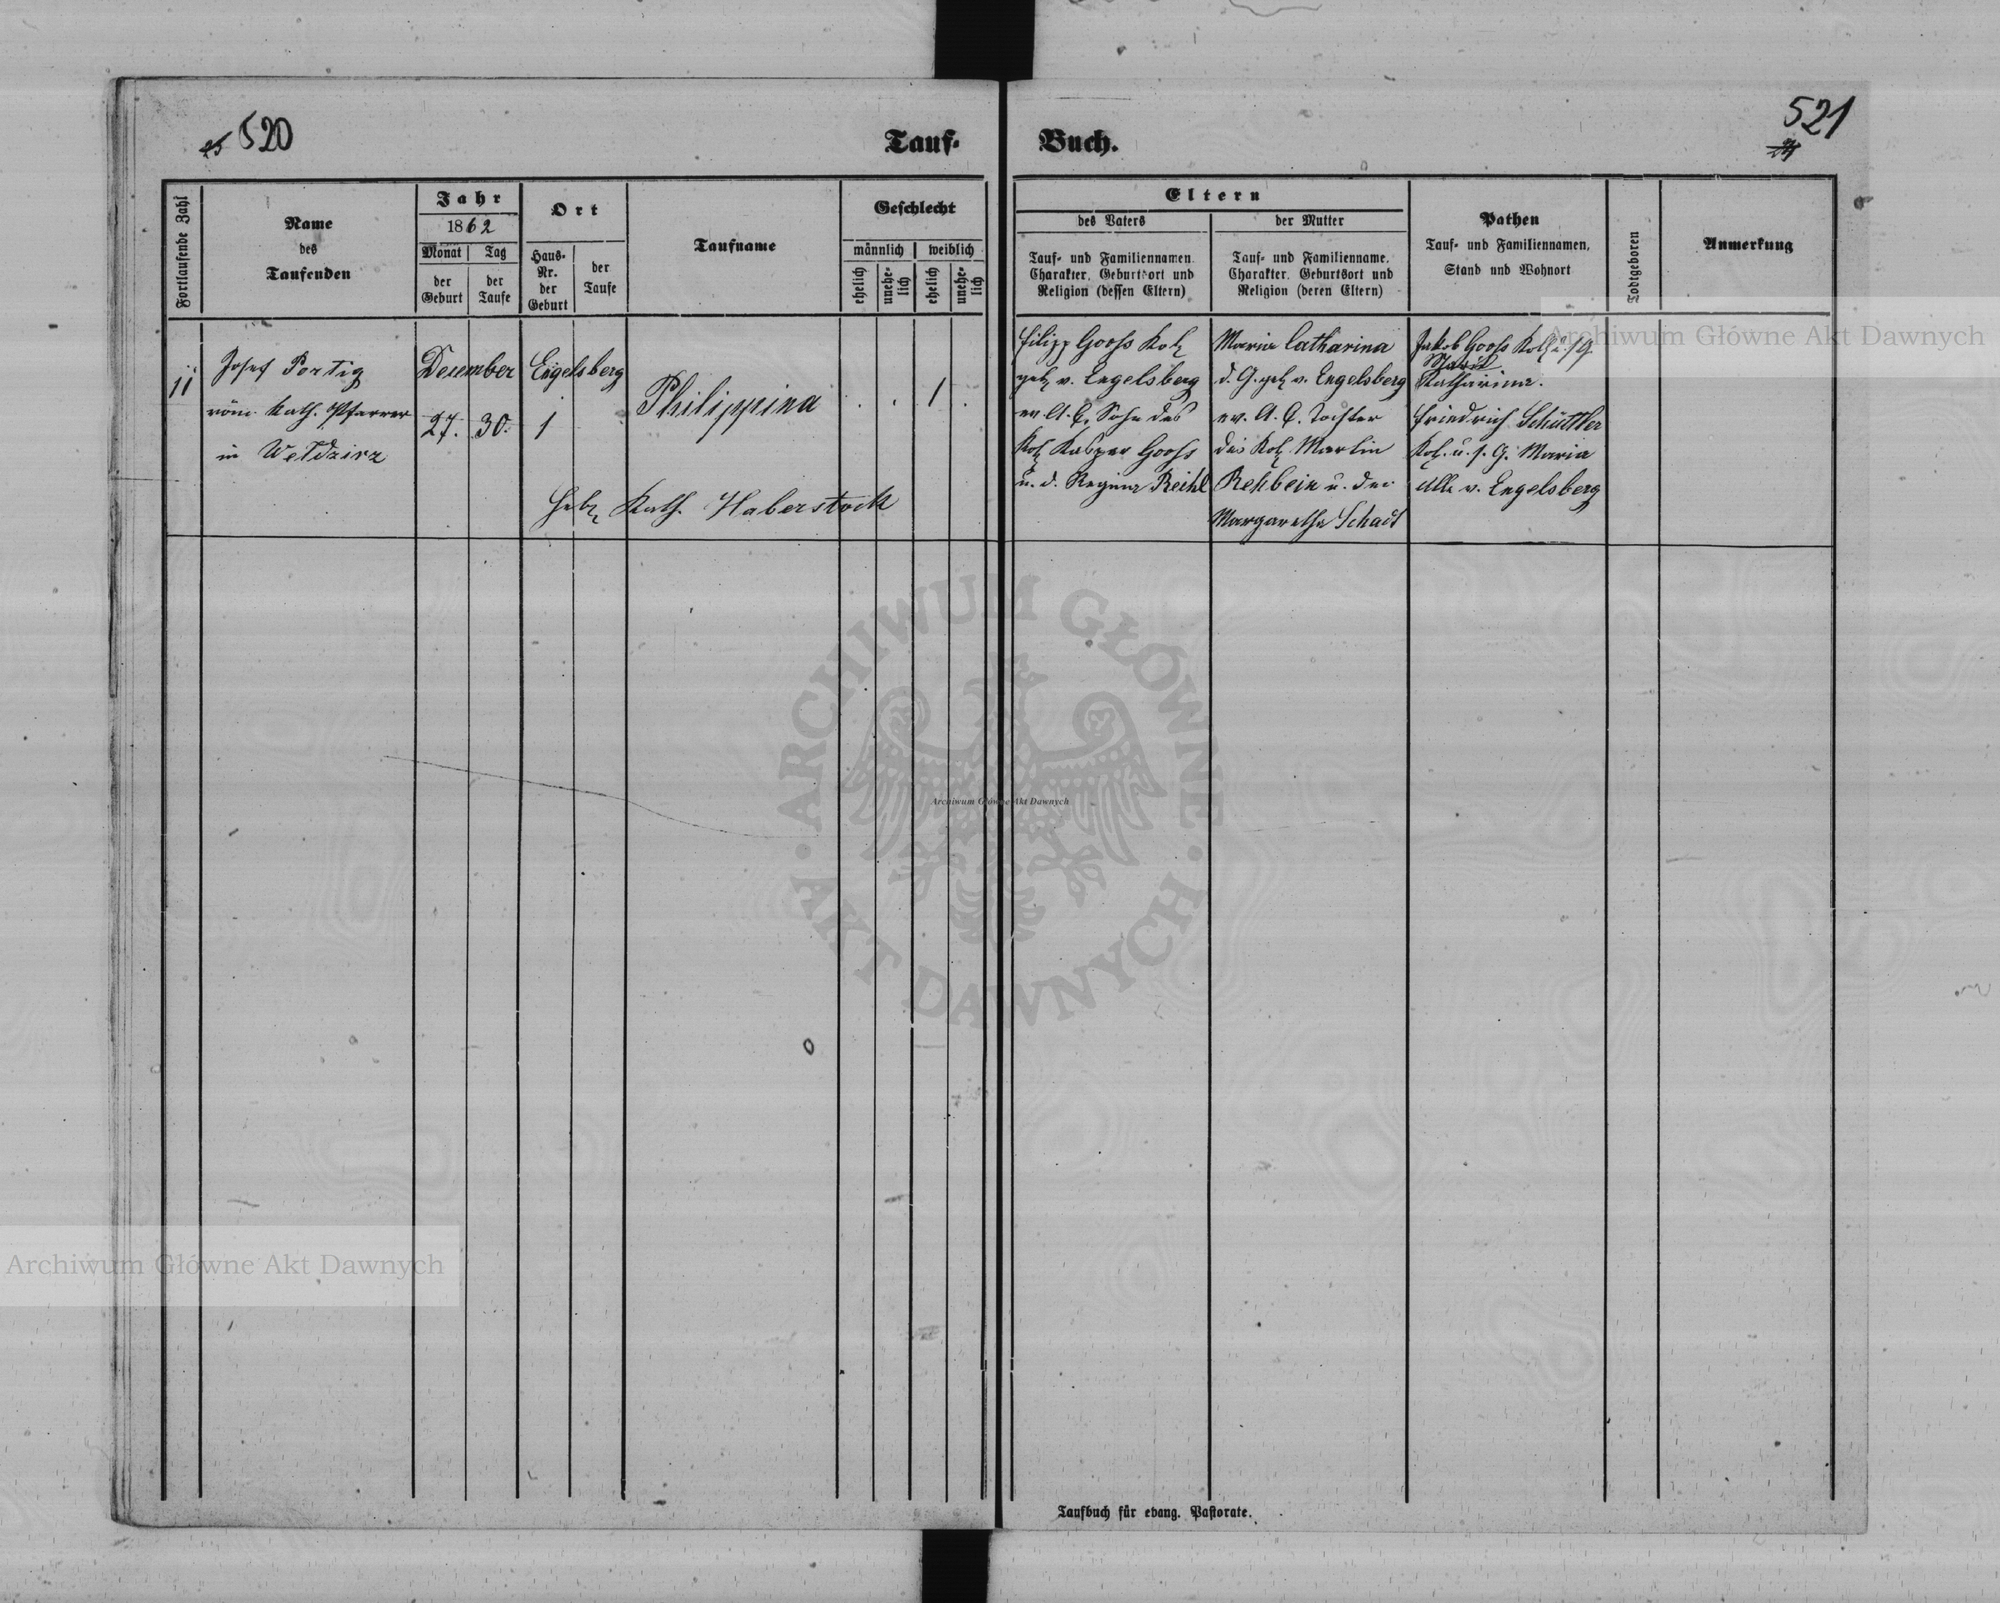 520
521
Tauf-
Buch.
Fortlaufende Zahl
Name
des
Taufenden
Jahr
1862
Monat
Tag
der
Geburt
der
Taufe
Ort
Haus-
Nr.
der
Geburt
der
Taufe
Taufname
Geschlecht
männlich
weiblich
ehelich
unehe-
lich
ehelich
unehe-
lich
Eltern
des Vaters
Tauf- und Familiennamen
Charakter, Geburtsort und
Religion (dessen Eltern)
der Mutter
Tauf- und Familienname,
Charakter, Geburtsort und
Religion (deren Eltern)
Pathen
Tauf- und Familiennamen,
Stand und Wohnort
Todtgeboren
Anmerkung
11
Josef Portig
röm. kath. Pfarrer
in Weldzirz
Desember
27. 30.
Engelsberg
1
Philippina
. . 1 .
Heb. Kath. Haberstock
Filipp Gooss Kol
geb v. Engelsberg
ev. A. C. Sohn des
Kol Kasper Gooss
u. d. Regina Reihl
Maria Catharina
d. G. geb v. Engelsberg
ev. A. C. Tochter
des Kol. Martin
Rehbein u. der
Margaretha Schadt
Jakob Gooss Kol u. s G.
Katharina.
Friedrich Schüttler
Kol. u. s. G. Maria
Alle v. Engelsberg
Taufbuch für evang. Pastorate.
Archiwum Główne Akt Dawnych
ARCHIWUM GŁÓWNE
AKT DAWNYCH
Archiwum Główne Akt Dawnych
Archiwum Główne Akt Dawnych